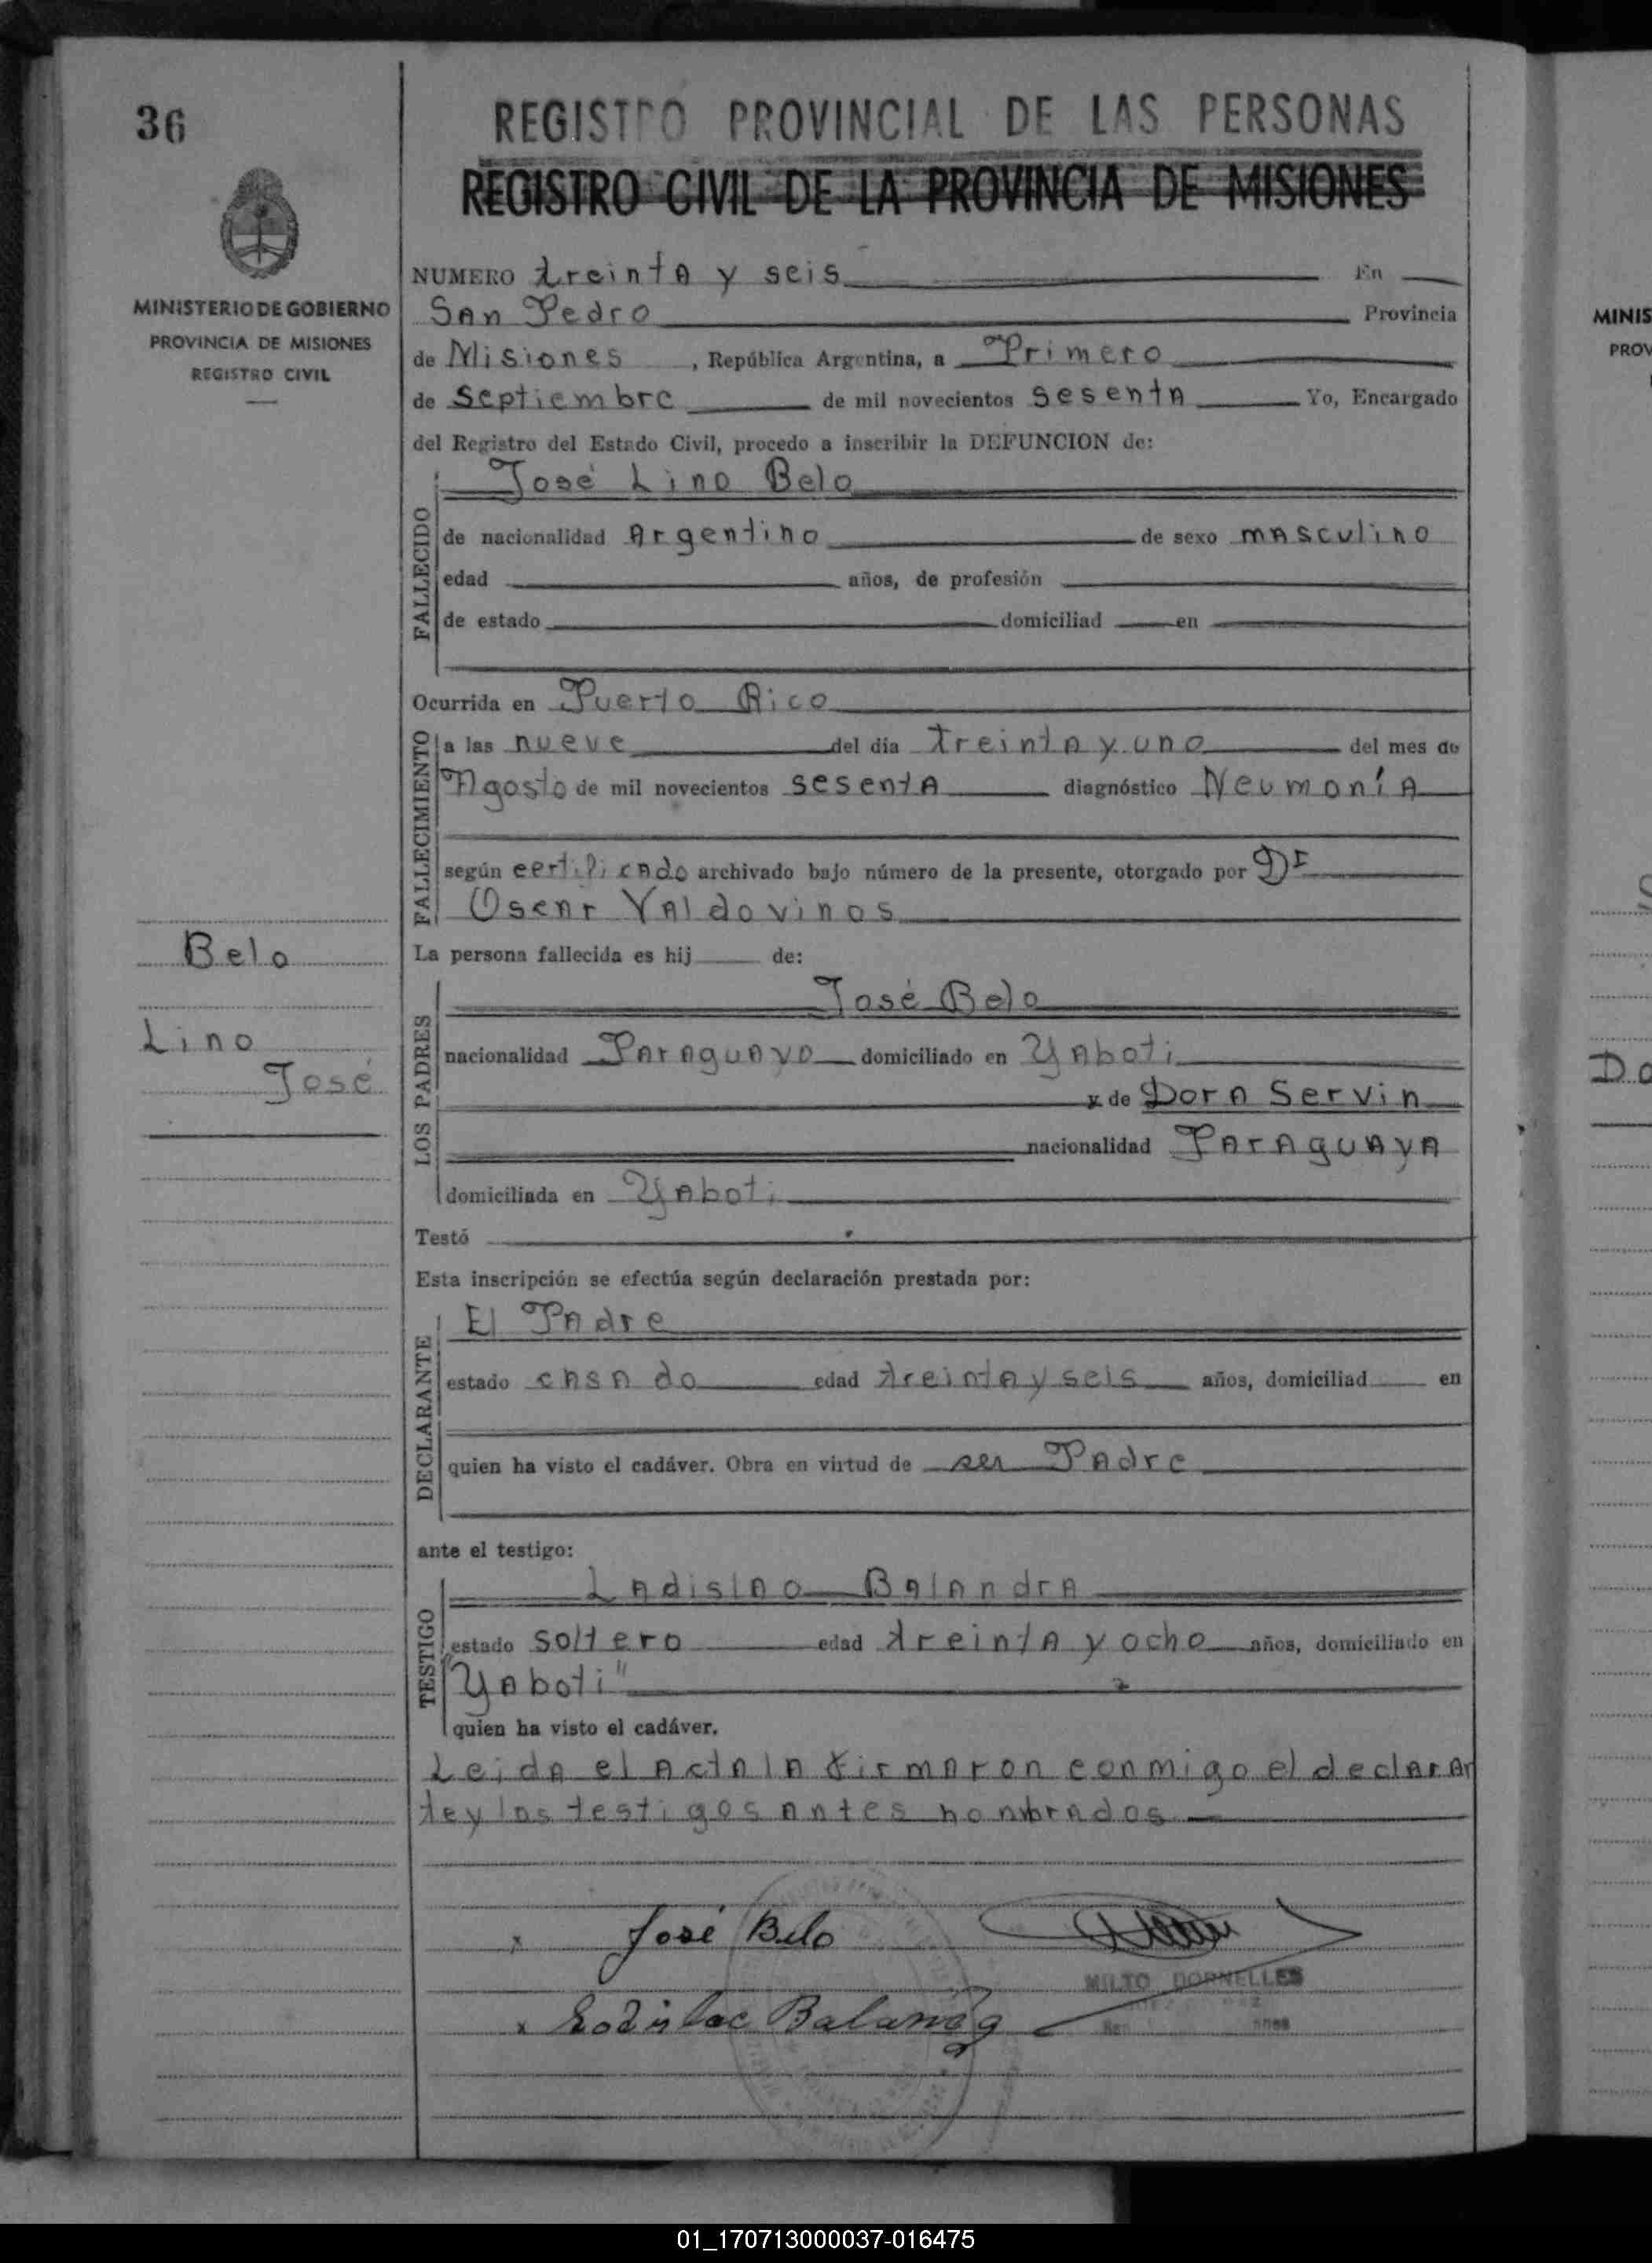 36
REGISTRO PROVINCIAL DE LAS PERSONAS
REGISTRO CIVIL DE LA PROVINCIA DE MISIONES
MINISTERIO DE GOBIERNO
PROVINCIA DE MISIONES
REGISTRO CIVIL
NUMERO treinta y seis En
San Pedro Provincia
de Misiones, República Argentina, a Primero
de Septiembre de mil novecientos sesenta Yo, Encargado
del Registro del Estado Civil, procedo a inscribir la DEFUNCION de:
FALLECIDO
José Lino Belo
de nacionalidad Argentino de sexo masculino
edad años, de profesión
de estado domiciliad en
Ocurrida en Puerto Rico
FALLECIMIENTO
a las nueve del día treinta y uno del mes de
Agosto de mil novecientos sesenta diagnóstico Neumonía
según certificado archivado bajo número de la presente, otorgado por Dr
Oscar Valdovinos
Belo
Lino
José
La persona fallecida es hij de:
LOS PADRES
José Belo
nacionalidad Paraguayo domiciliado en Yaboti
y de Dora Servin
nacionalidad Paraguaya
domiciliada en Yaboti
Testó
Esta inscripción se efectúa según declaración prestada por:
DECLARANTE
El Padre
estado casado edad treinta y seis años, domiciliad en
quien ha visto el cadáver. Obra en virtud de ser Padre
ante el testigo:
TESTIGO
Ladislao Balandra
estado soltero edad treinta y ocho años, domiciliado en
"Yaboti"
quien ha visto el cadáver.
Leida el Acta la firmaron conmigo el declaran
te y los testigos antes nombrados
x José Belo
MILTO DORNELLES
x
MINIS
PROV
01_170713000037-016475